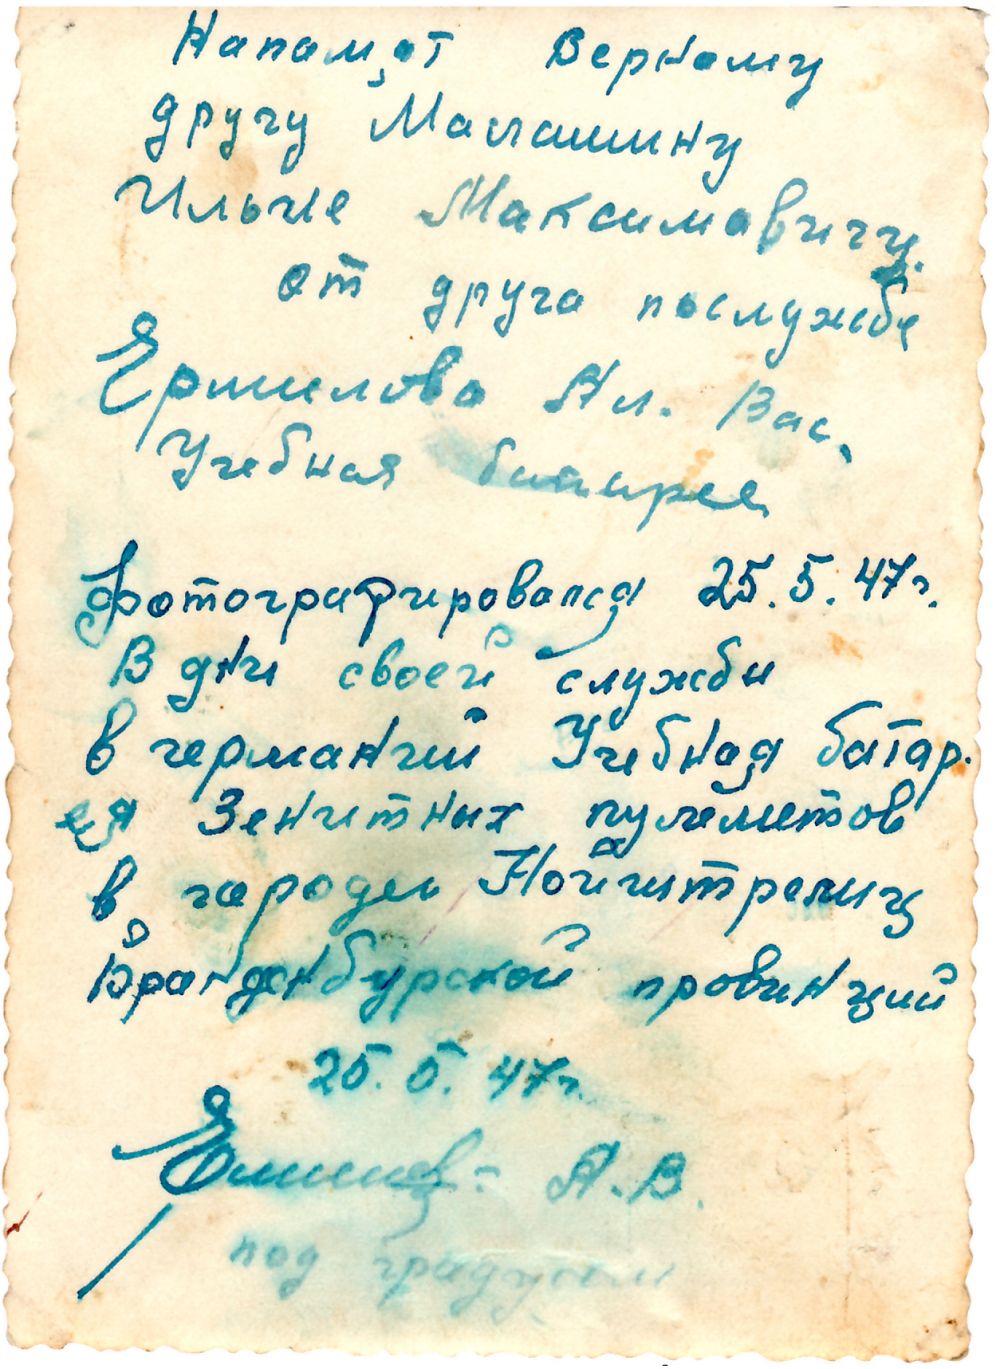 Напамят Верному
другу Малашину
Илье Максимовичу.
от друга послужбе
Ермилова Ал. Вас.
Учебная батарея
фотографировался 25.5.47г.
В дни своей службы
в германий Учебная батар.
ея Зенитных пулеметов
в городе Нойштрелиц
Бранденбурской провинций
25.5.47г.
А.В.
под градусом